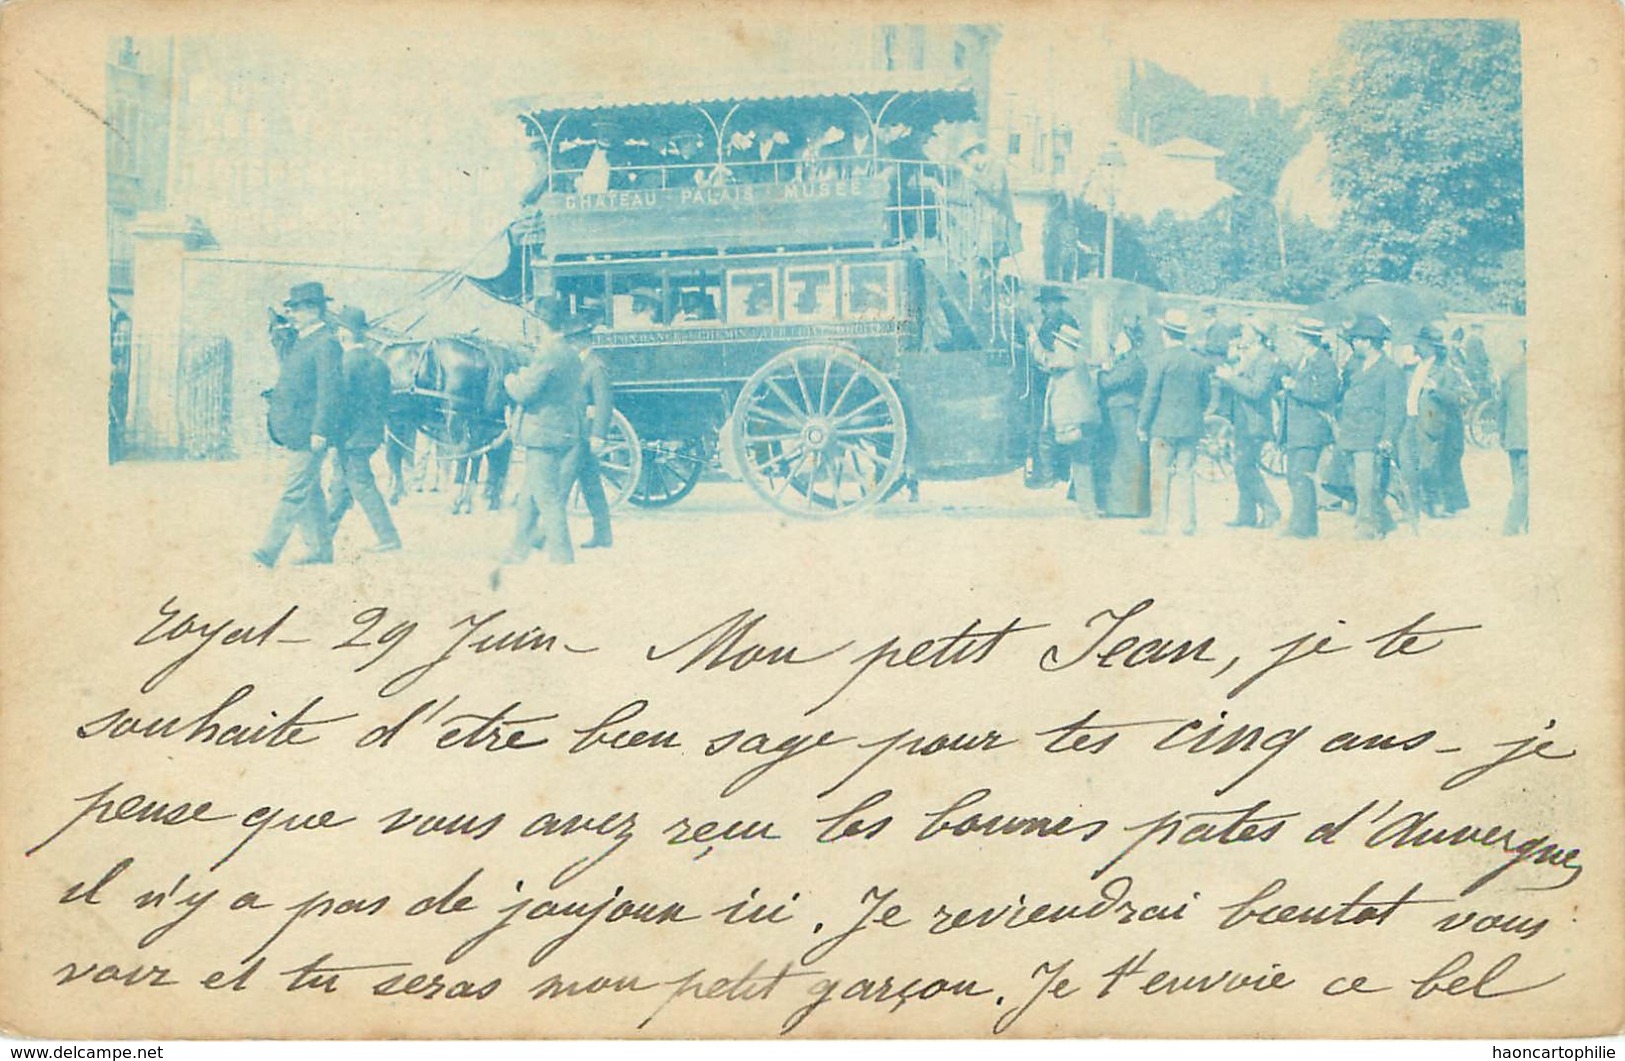 CHATEAU - PALAIS - MUSÉE
Royat - 29 Juin - Mon petit Jean, je te
souhaite d'être bien sage pour tes cinq ans - je
pense que vous avez reçu les bonnes pates d'Auvergne,
il n'y a pas de joujoux ici. Je reviendrai bientot vous
voir et tu seras mon petit garçon. Je t'envoie ce bel
www.delcampe.net
haoncartophilie